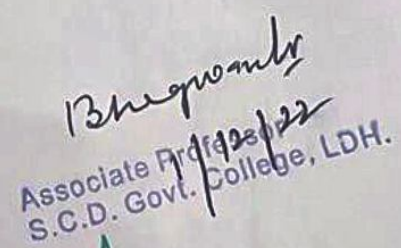 1/12/22
Associate Professor
S.C.D. Govt. College, LDH.